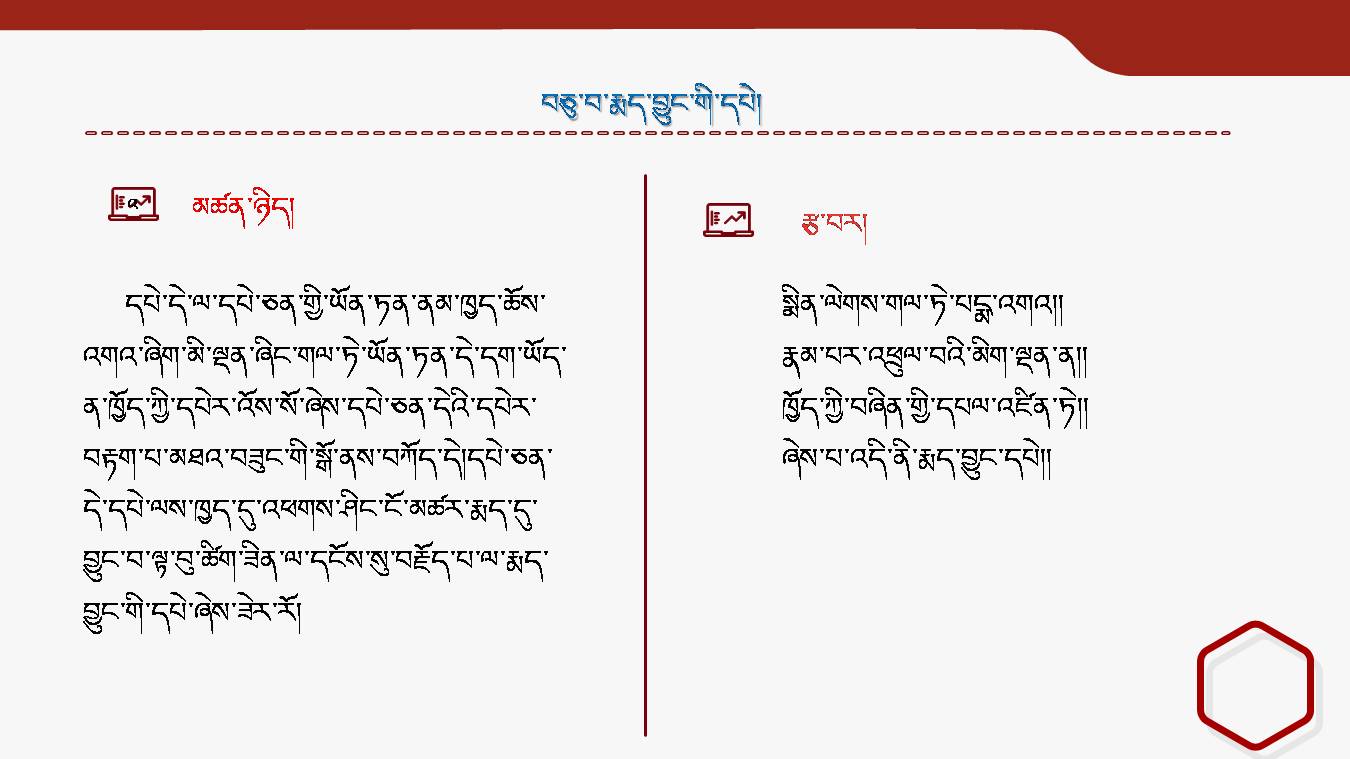 བཅུ་བ་རྨད་བྱུང་གི་དཔེ།
མཚན་ཉིད།
དཔེ་དེ་ལ་དཔེ་ཅན་གྱི་ཡོན་ཏན་ནམ་ཁྱད་ཆོས་
འགའ་ཞིག་མི་ལྡན་ཞིང་གལ་ཏེ་ཡོན་ཏན་དེ་དག་ཡོད་
ན་ཁྱོད་ཀྱི་དཔེར་འོས་སོ་ཞེས་དཔེ་ཅན་དེའི་དཔེར་
བརྟག་པ་མཐའ་བཟུང་གི་སྒོ་ནས་བཀོད་དེ།དཔེ་ཅན་
དེ་དཔེ་ལས་ཁྱད་དུ་འཕགས་ཤིང་ངོ་མཚར་རྨད་དུ་
བྱུང་བ་ལྟ་བུ་ཚིག་ཟིན་ལ་དངོས་སུ་བརྗོད་པ་ལ་རྨད་
བྱུང་གི་དཔེ་ཞེས་ཟེར་རོ།
རྩ་བར།
སྨིན་ལེགས་གལ་ཏེ་པདྨ་འགའ།།
རྣམ་པར་འཕྲུལ་བའི་མིག་ལྡན་ན།།
ཁྱོད་ཀྱི་བཞིན་གྱི་དཔལ་འཛིན་ཏེ།།
ཞེས་པ་འདི་ནི་རྨད་བྱུང་དཔེ།།